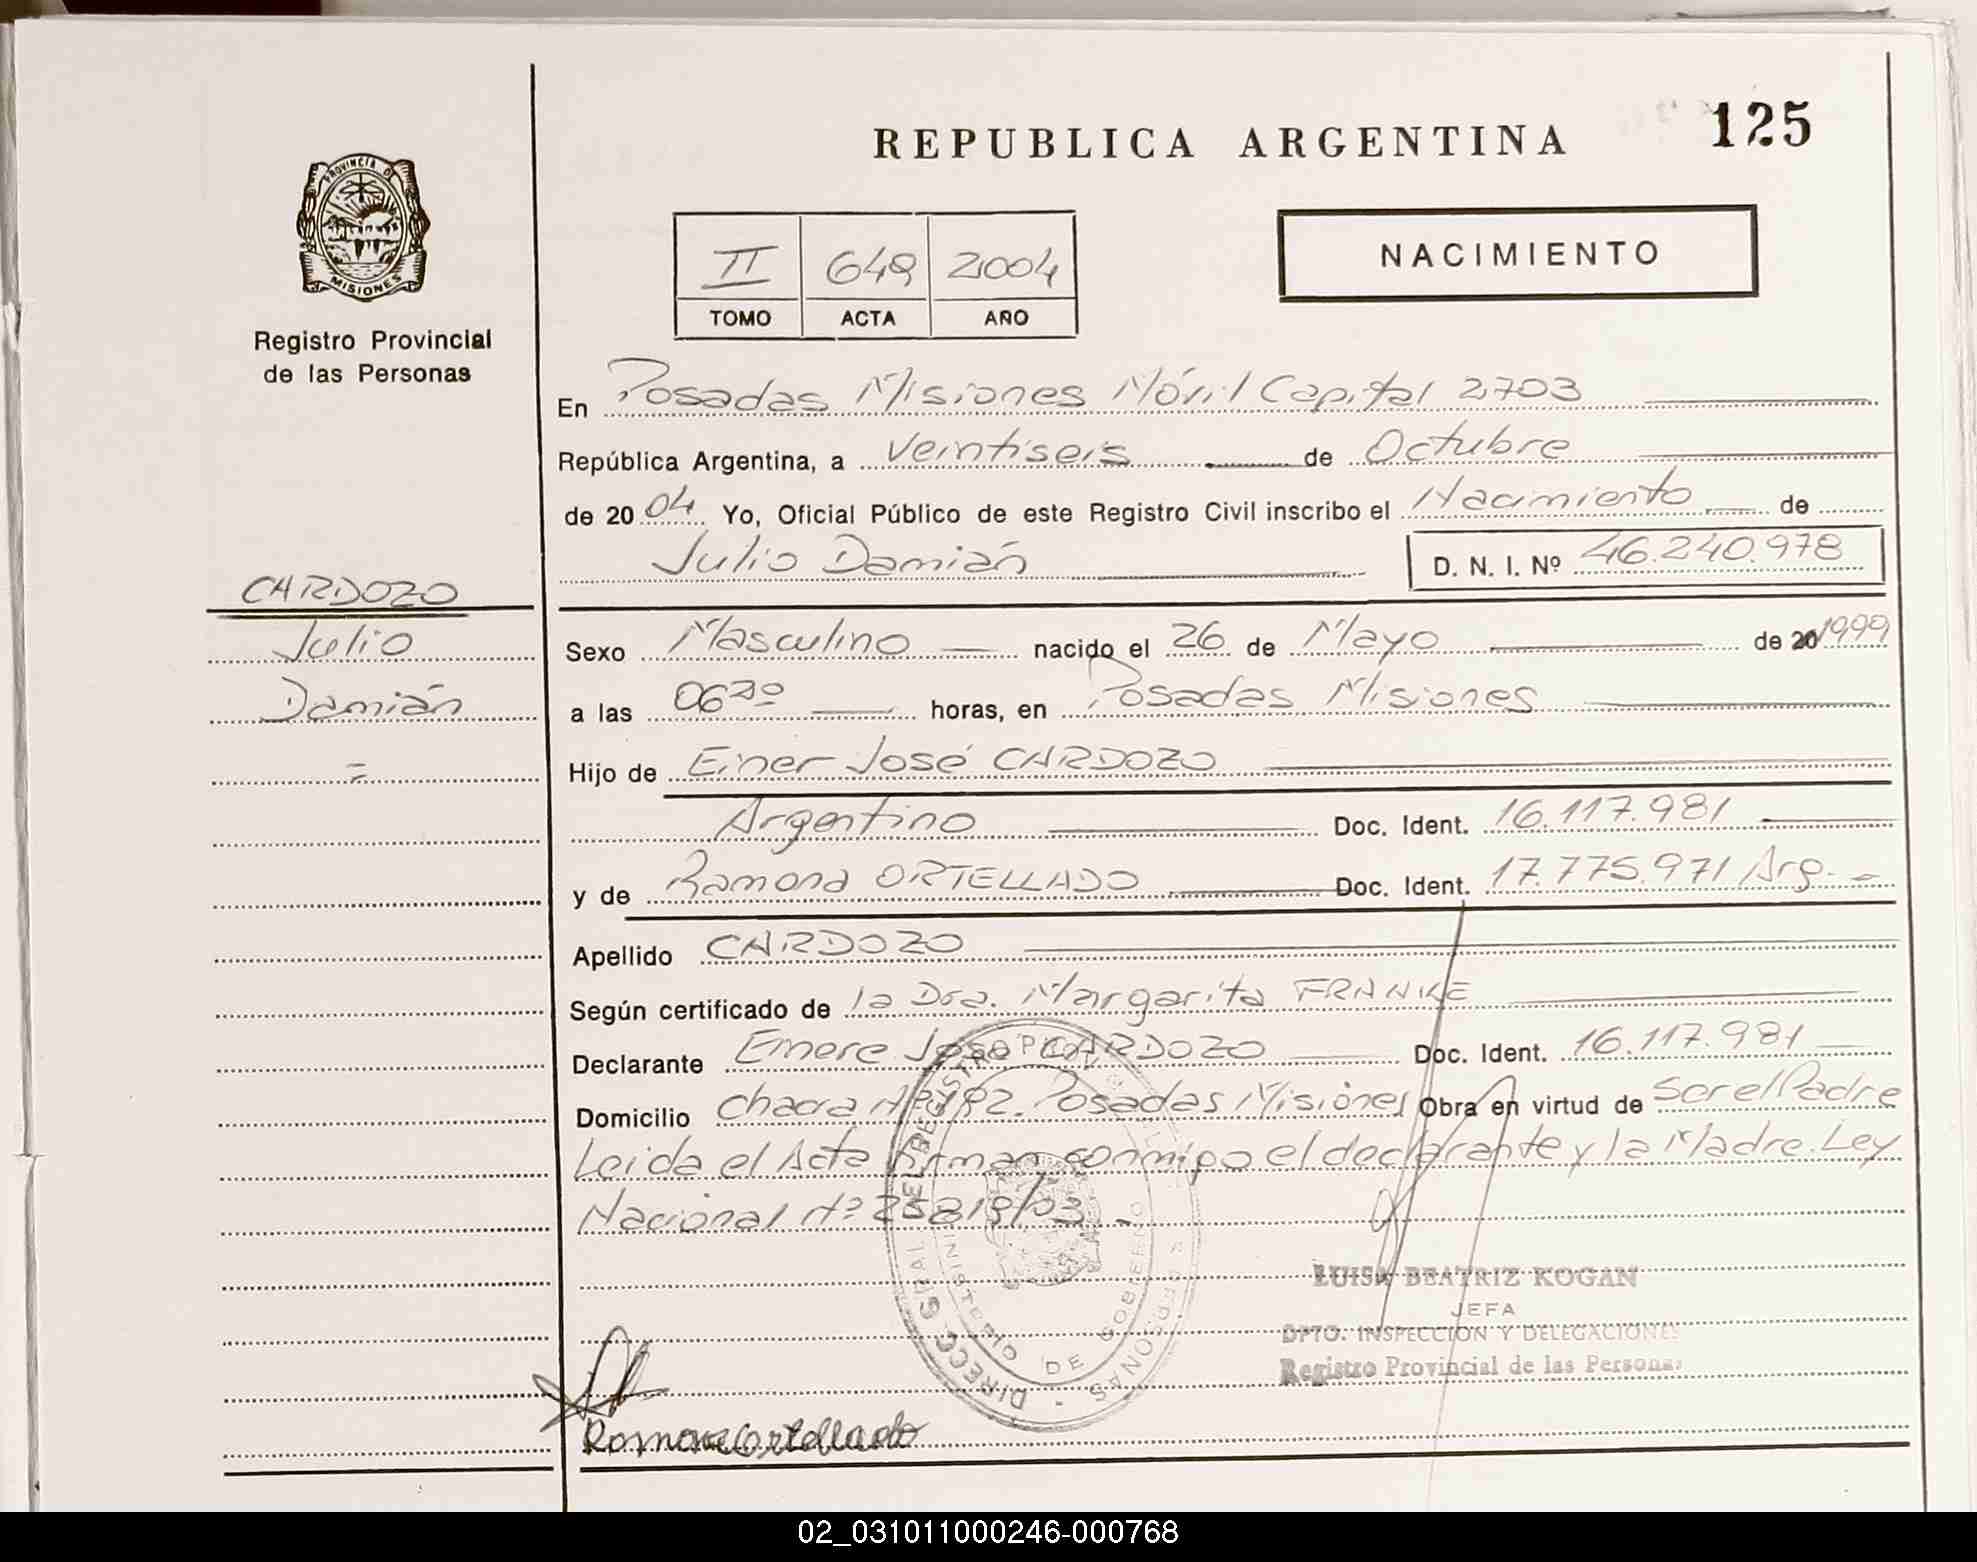 REPUBLICA ARGENTINA
125
PROVINCIA DE
MISIONES
Registro Provincial
de las Personas
II 648 2004
TOMO ACTA AÑO
NACIMIENTO
En Posadas Misiones Móvil Capital 2703
República Argentina, a Veintiseis de Octubre
de 2004 Yo, Oficial Público de este Registro Civil inscribo el Nacimiento de
Julio Damián D. N. I. Nº 46.240.978
CARDOZO
Julio
Damián
Sexo Masculino nacido el 26 de Mayo de 20 1999
a las 06²⁰ horas, en Posadas Misiones
Hijo de Einer José CARDOZO
Argentino Doc. Ident. 16.117.981
y de Ramona ORTELLADO Doc. Ident. 17.775.971 Arg.
Apellido CARDOZO
Según certificado de la Dra. Margarita FRANKE
Declarante Emere José CARDOZO Doc. Ident. 16.117.981
Domicilio chacra Nº 192. Posadas Misiones Obra en virtud de Ser el Padre
Leida el Acta firman conmigo el declarante y la Madre. Ley
Nacional Nº 25819/03.
DIRECC. GRAL. DEL REGISTRO PROV. DE LAS PERSONAS
MINISTERIO DE GOBIERNO
LUISA BEATRIZ KOGAN
JEFA
DPTO. INSPECCION Y DELEGACIONES
Registro Provincial de las Personas
Ramona Ortellado
02_031011000246-000768